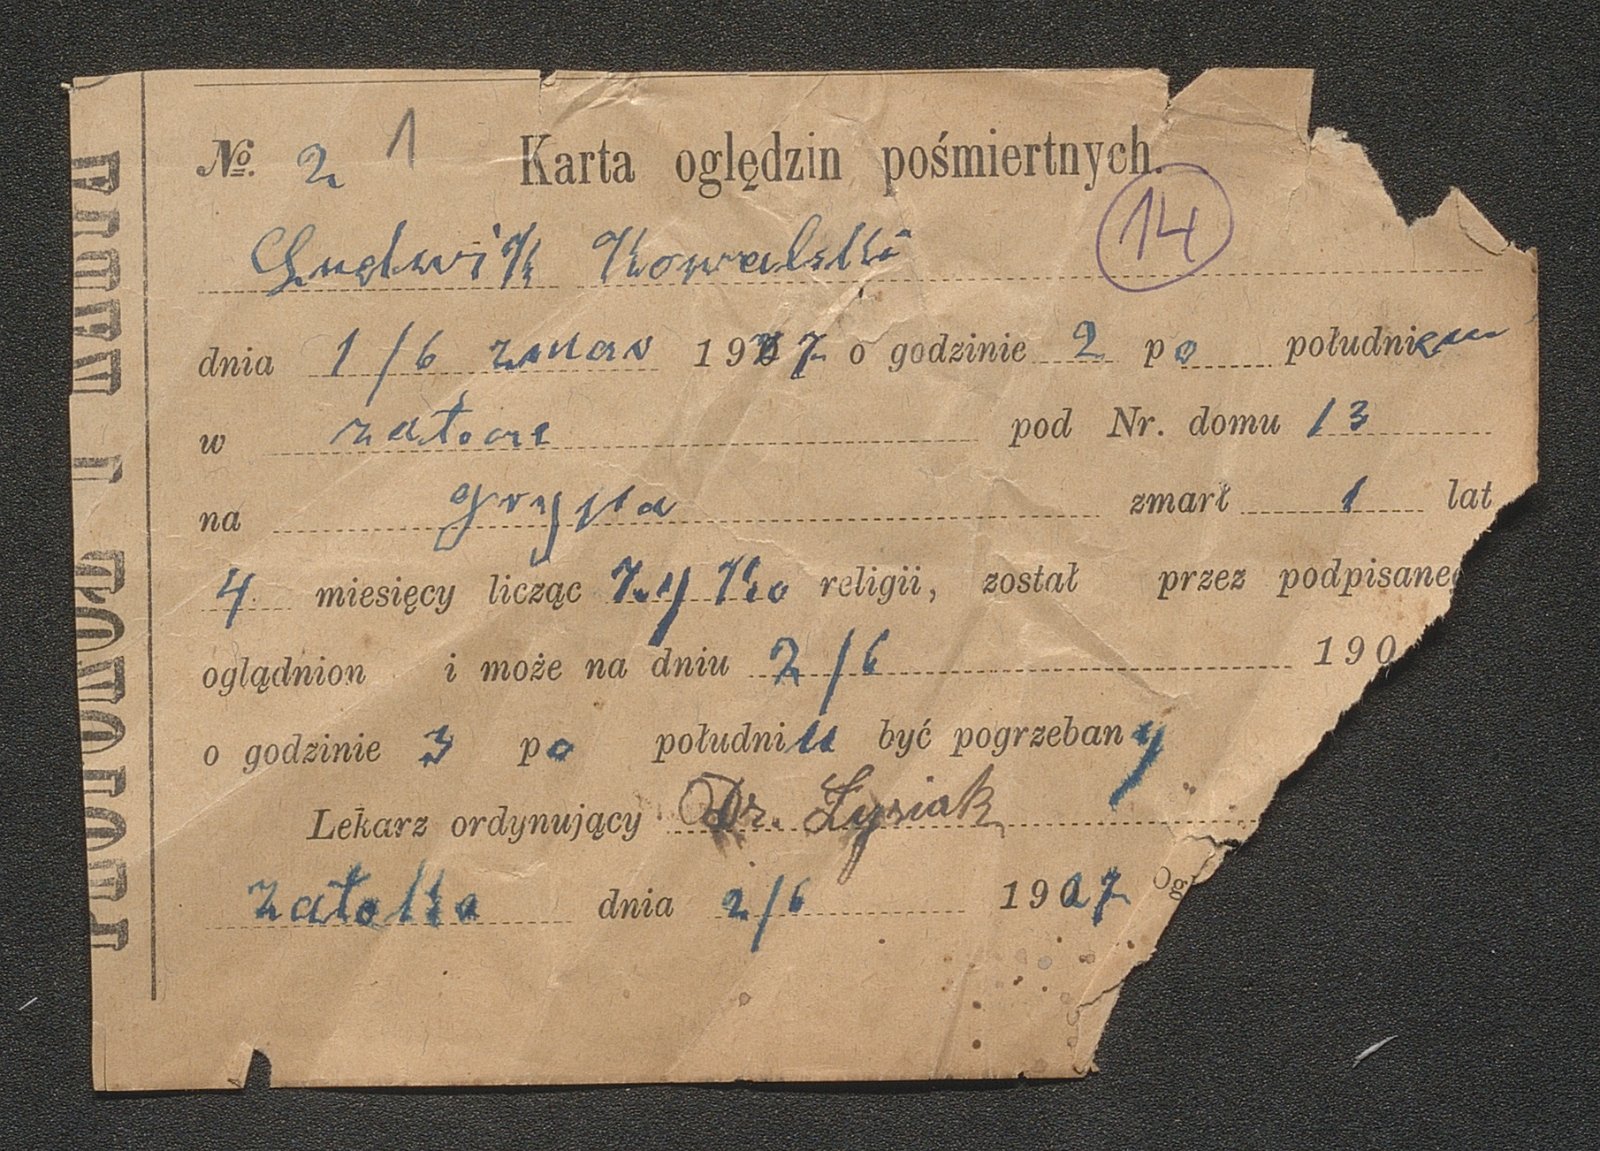 № 2 1 Karta oględzin pośmiertnych.
14
Ludwik Kowalski
dnia 1/6 zmar 1927 o godzinie 2 po południem
w zatore pod Nr. domu 13
na grypa zmarł 1 lat
4 miesięcy licząc religii, został przez podpisaneg
oglądnion i może na dniu 2/6 190
o godzinie 3 po południu być pogrzebany
Lekarz ordynujący Dr. Łysiak
dnia 2/6 1927 Og